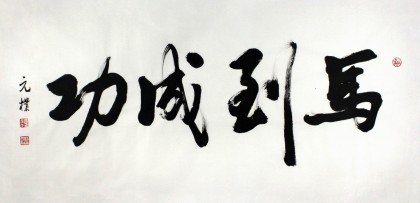 馬到成功
元樸